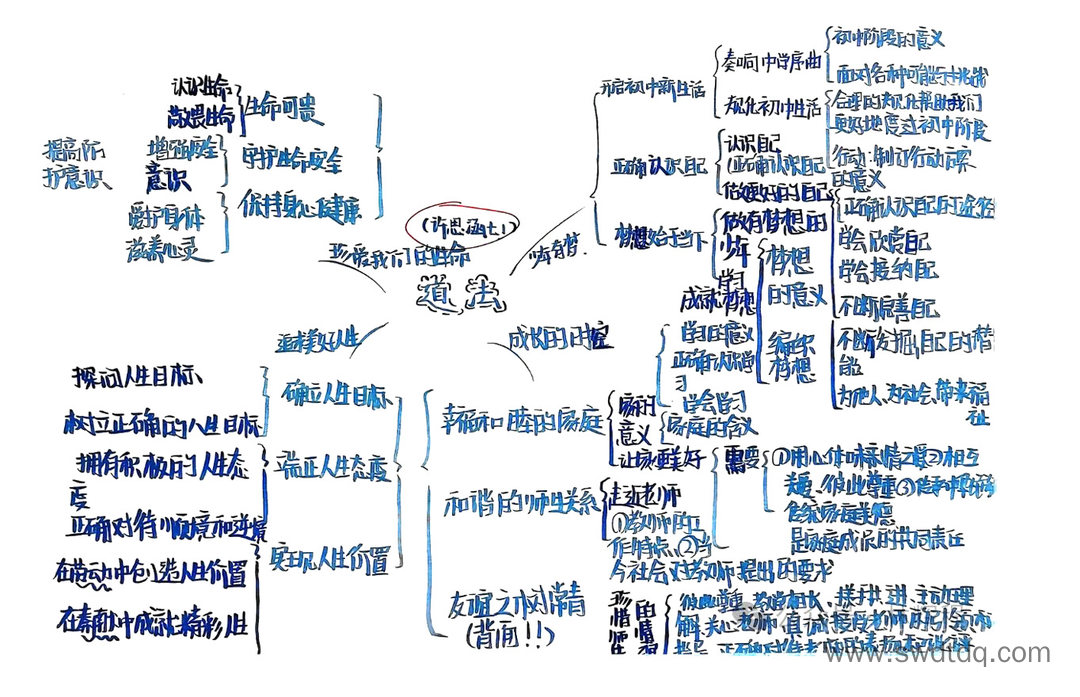 道法
(许思涵t.1)
少年有梦.
开启初中新生活
奏响中学序曲
初中阶段的意义
面对各种可能与挑战
规化初中生活
合理的规化帮助我们
更好地度过初中阶段
行动:制订行动方案
正确认识自己
认识自己
(正确认识自己
的意义
做更好的自己
正确认识自己的途径
学会欣赏自己
学会接纳自己
不断完善自己
不断发掘自己的潜
能
为他人、为社会、带来福
祉
梦想始于当下
做有梦想的
少年
梦想
的意义
编织
梦想
学习
成就梦想
学习的意义
正确认识学
习
学会学习
成长的时空
幸福和睦的家庭
家的
意义
家庭的含义
让家更美好
需要
①用心体味亲情之爱②相互
是家庭成员的共同责任
和谐的师生关系
走近老师
①教师的工
作特点、②当
今社会对教师提出的要求
珍
惜
师
生
友谊之树常青
(背面!!)
珍爱我们的生命
生命可贵
认识生命
敬畏生命
守护生命安全
增强安全
意识
提高防
护意识
保持身心健康
爱护身体
滋养心灵
追求美好人生
确立人生目标
探问人生目标、
树立正确的人生目标
端正人生态度
拥有积极的人生态
度
正确对待顺境和逆境
实现人生价置
在劳动中创造人生价置
在奉献中成就精彩人生
www.swdtdq.com